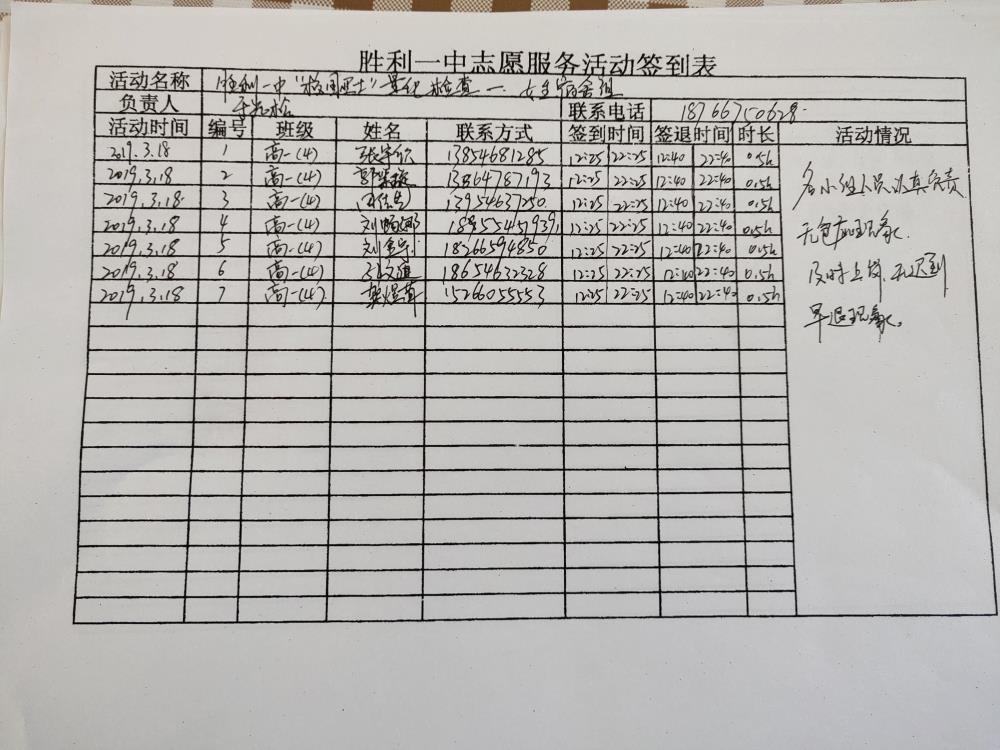 胜利一中志愿服务活动签到表
活动名称 胜利一中"校园卫士"量化检查一 女生宿舍组
负责人 联系电话 18766750628
活动时间 编号 班级 姓名 联系方式 签到时间 签退时间 时长 活动情况
2019.3.18 1 高一(4) 13854681285 12:25 22:25 12:40 22:40 0.5h
2019.3.18 2 高一(4) 13864787193 12:25 22:25 12:40 22:40 0.5h
2019.3.18 3 高一(4) 13954637250 12:25 22:25 12:40 22:40 0.5h
2019.3.18 4 高一(4) 12:25 22:25 12:40 22:40 0.5h
2019.3.18 5 高一(4) 18266594850 12:25 22:25 12:40 22:40 0.5h
2019.3.18 6 高一(4) 18654632328 12:25 22:25 12:40 22:40 0.5h
2019.3.18 7 高一(4) 15266055553 12:25 22:25 12:40 22:40 0.5h
各小组人员认真负责
无包庇现象.
及时上岗,无迟到
早退现象。